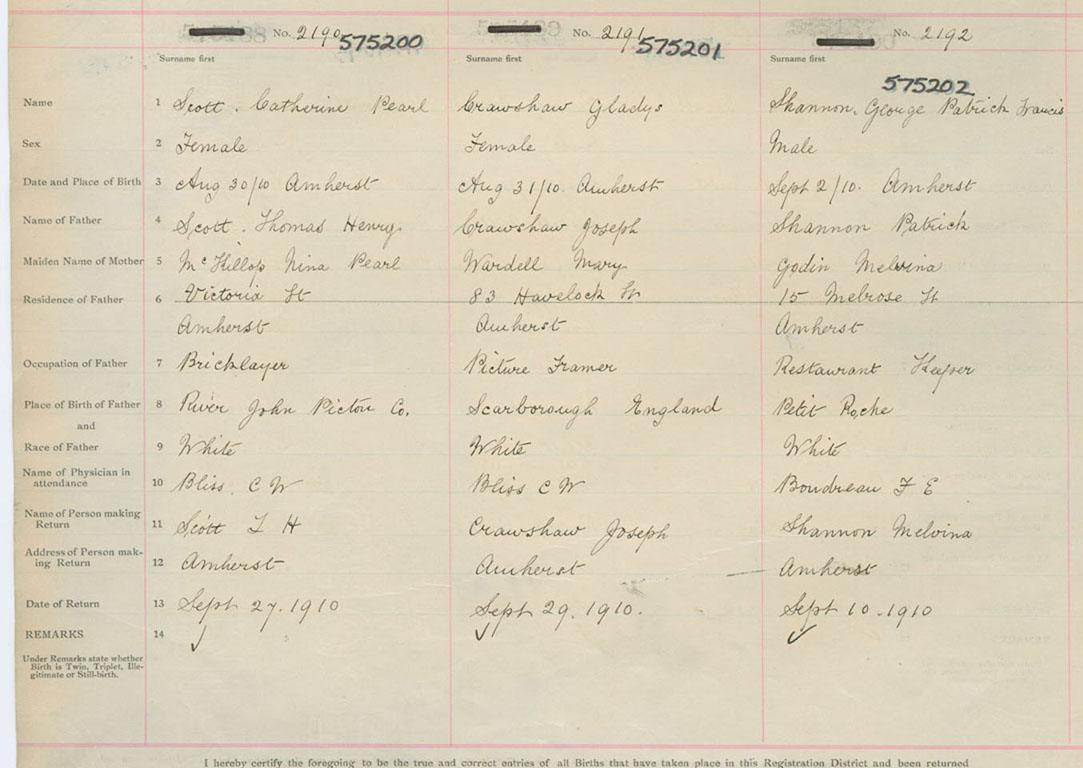 No. 2190 575200 No. 2191 575201 No. 2192
Surname first Surname first Surname first
575202
Name 1 Scott. Catherine Pearl Crawshaw Gladys Shannon, George Patrick Francis
Sex 2 Female Female Male
Date and Place of Birth 3 Aug 30/10 Amherst Aug 31/10. Amherst Sept 2/10. Amherst
Name of Father 4 Scott. Thomas Henry. Crawshaw Joseph Shannon Patrick
Maiden Name of Mother 5 McKillop Nina Pearl Wardell Mary Godin Melvina
Residence of Father 6 Victoria St 83 Havelock St 15 Melrose St
Amherst Amherst Amherst
Occupation of Father 7 Bricklayer Picture Framer Restaurant Keeper
Place of Birth of Father 8 River John Pictou Co. Scarborough England Petit Roche
and
Race of Father 9 White White White
Name of Physician in
attendance 10 Bliss. C W Bliss C W Boudreau F E
Name of Person making
Return 11 Scott T H Crawshaw Joseph Shannon Melvina
Address of Person mak-
ing Return 12 Amherst Amherst Amherst
Date of Return 13 Sept 27. 1910 Sept 29. 1910. Sept 10 - 1910
REMARKS 14
Under Remarks state whether
Birth is Twin, Triplet, Ille-
gitimate or Still-birth.
I hereby certify the foregoing to be the true and correct entries of all Births that have taken place in this Registration District and been returned